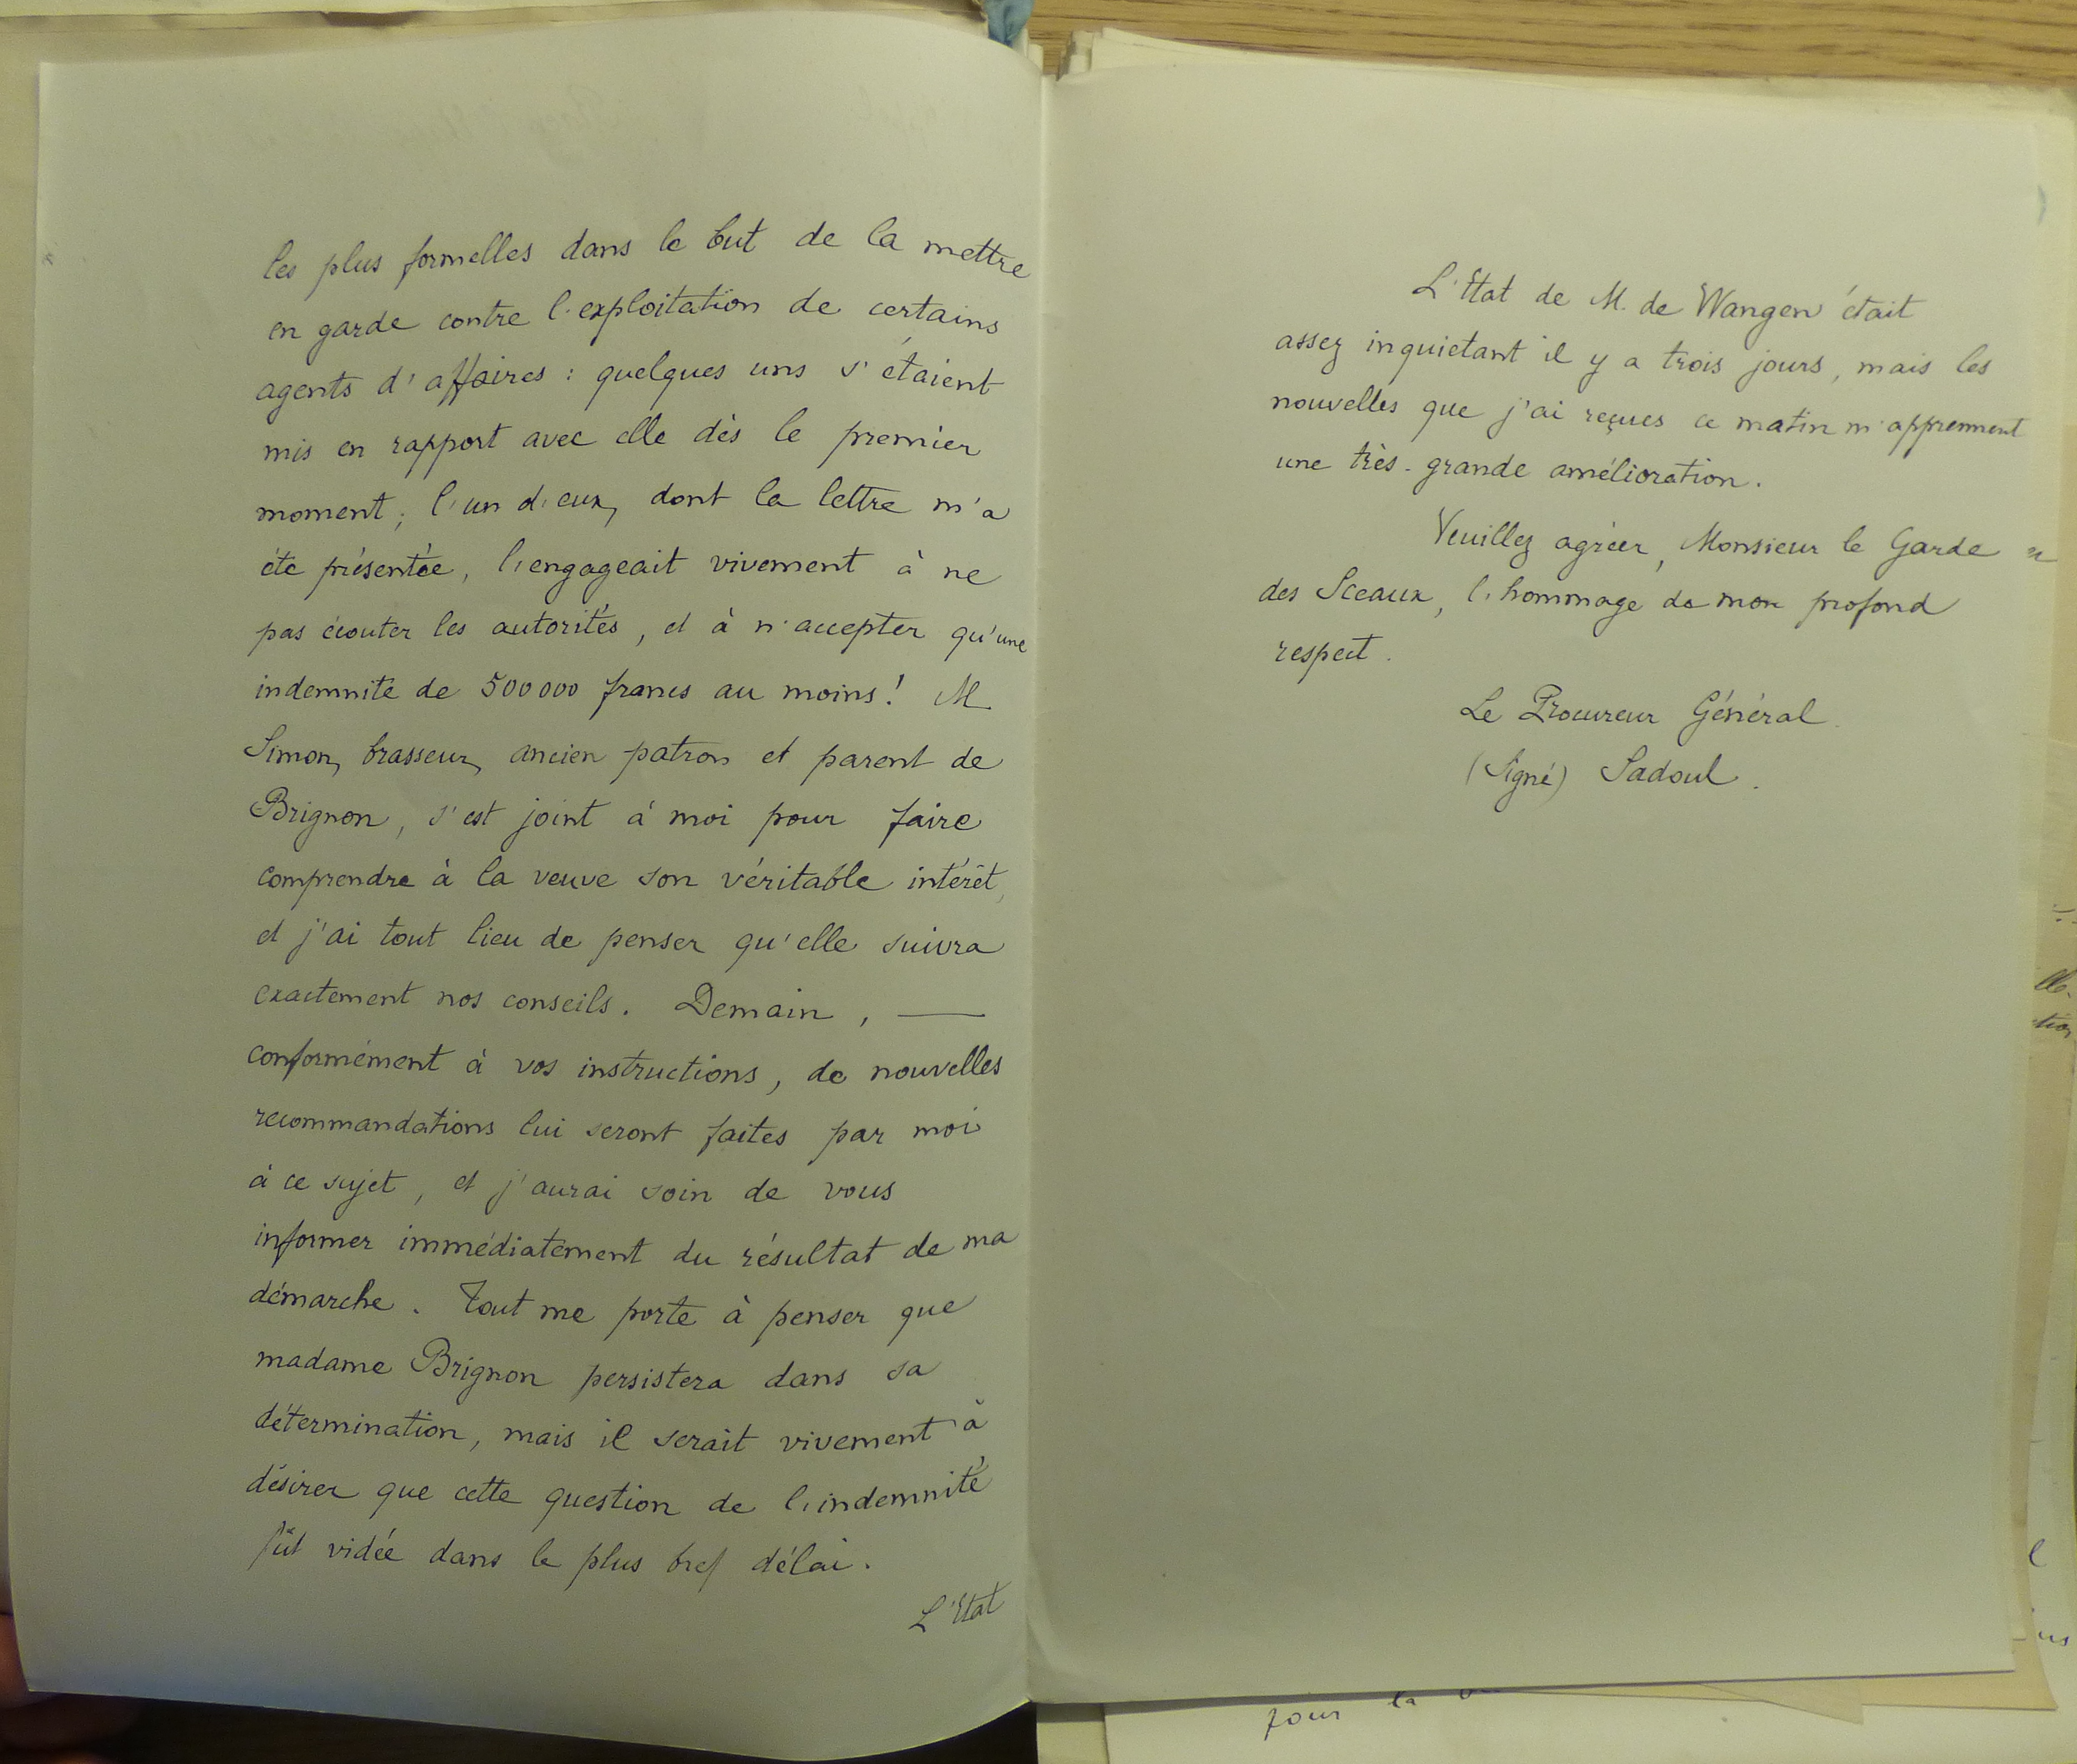 les plus formelles dans le but de la mettre
en garde contre l'exploitation de certains
agents d'affaires : quelques uns s'étaient
mis en rapport avec elle dès le premier
moment ; l'un d'eux, dont la lettre m'a
été présentée, l'engageait vivement à ne
pas écouter les autorités, et à n'accepter qu'une
indemnité de 500 000 francs au moins ! M
Simon, brasseur, ancien patron et parent de
Brignon, s'est joint à moi pour faire
comprendre à la veuve son véritable intérêt,
et j'ai tout lieu de penser qu'elle suivra
exactement nos conseils. Demain, —
conformément à vos instructions, de nouvelles
recommandations lui seront faites par moi
à ce sujet, et j'aurai soin de vous
informer immédiatement du résultat de ma
démarche. Tout me porte à penser que
madame Brignon persistera dans sa
détermination, mais il serait vivement à
désirer que cette question de l'indemnité
fût vidée dans le plus bref délai.
L'Etat
L'Etat de M. de Wangen était
assez inquietant il y a trois jours, mais les
nouvelles que j'ai reçues ce matin m'apprennent
une très-grande amélioration.
Veuillez agréer, Monsieur le Garde
des Sceaux, l'hommage de mon profond
respect.
Le Procureur Général
(Signé) Sadoul.
pour la